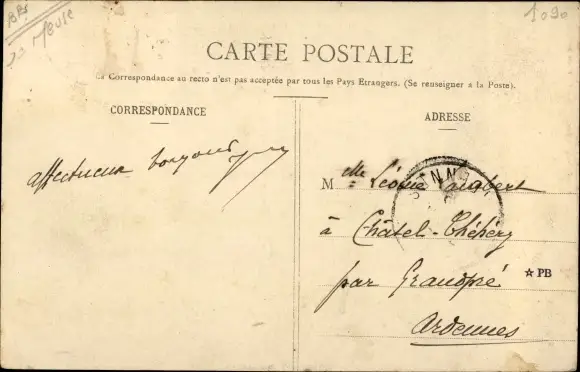 Meuse
1090
CARTE POSTALE
La Correspondance au recto n'est pas acceptée par tous les Pays Etrangers. (Se renseigner a la Poste).
CORRESPONDANCE
ADRESSE
affectueux bonjour
Melle Léonie Lambert
à Châtel-Chéhéry
par Grandpré
☆ PB
Ardennes